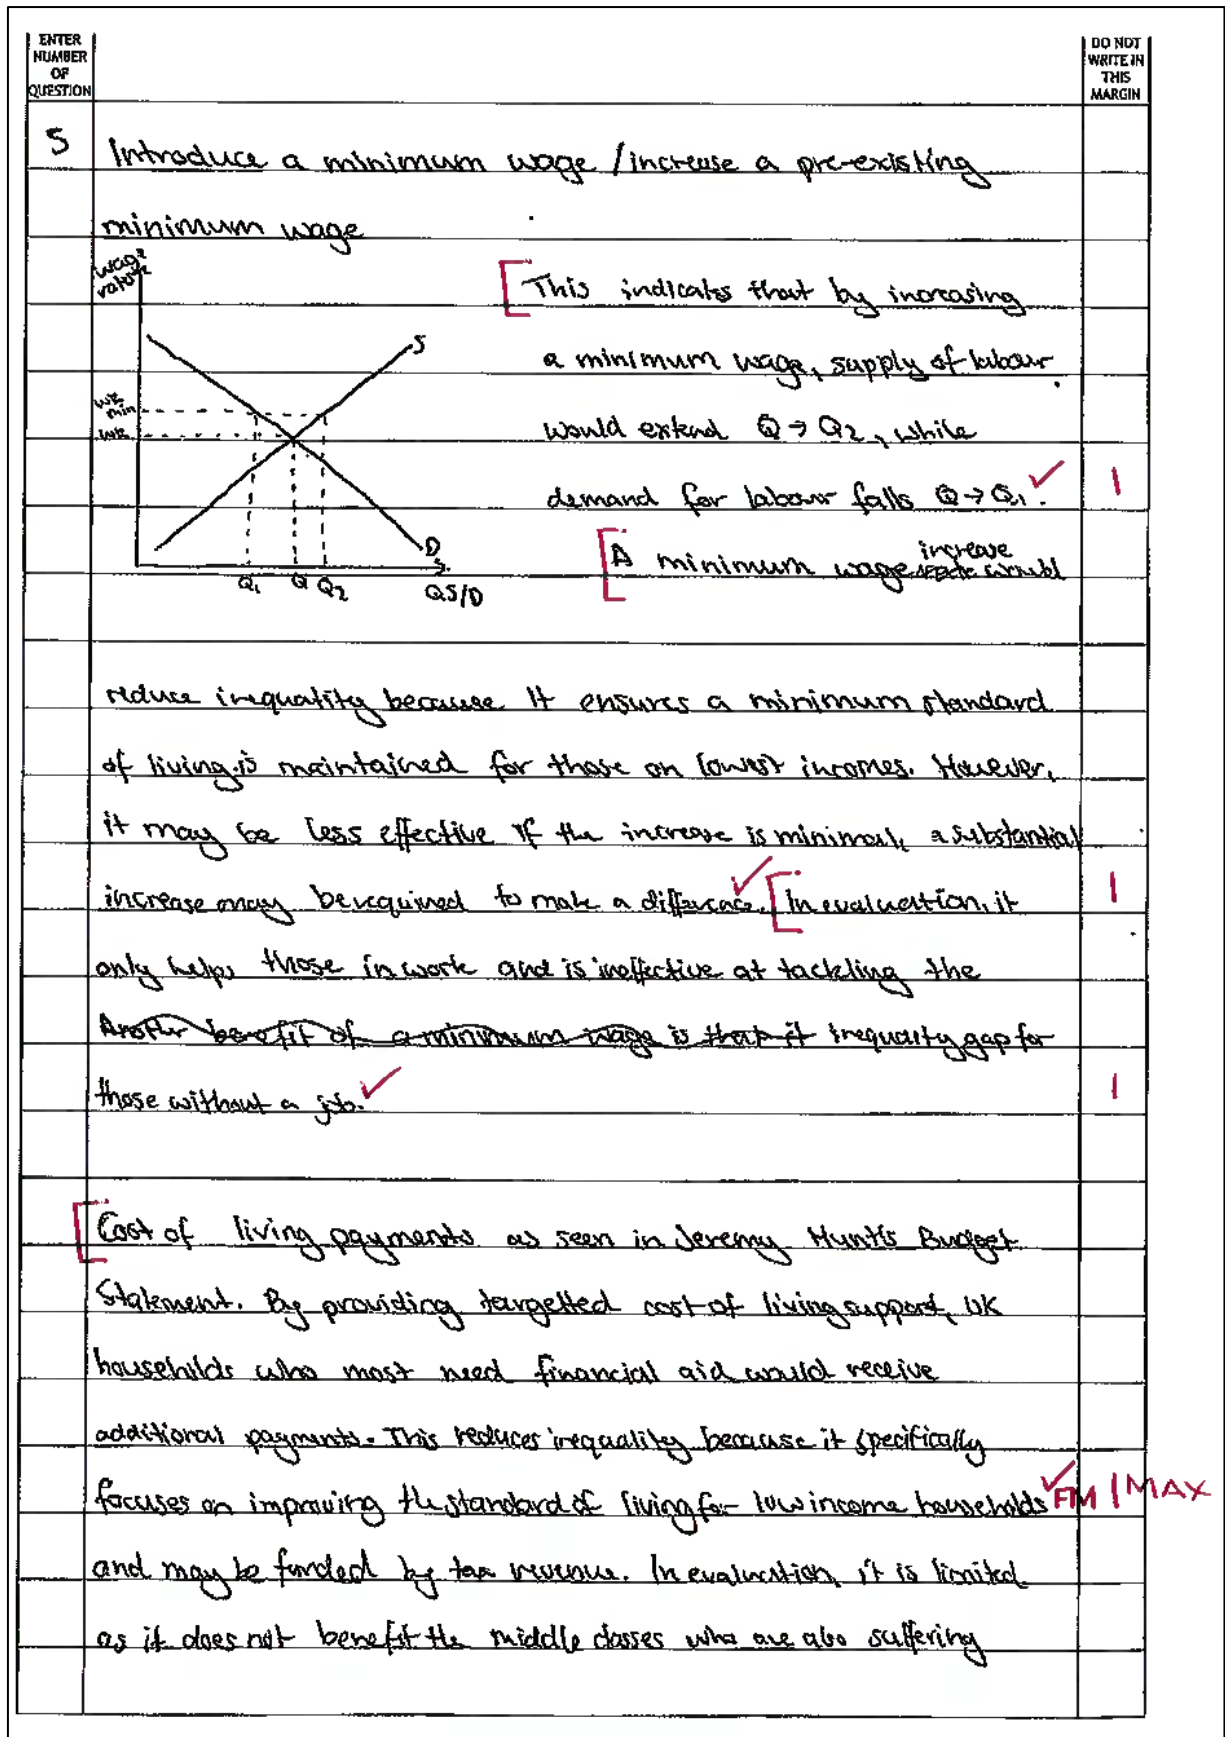 ENTER
NUMBER
OF
QUESTION
DO NOT
WRITE IN
THIS
MARGIN
5
Introduce a minimum wage / increase a pre-existing
minimum wage
wage
rate
This indicates that by increasing
a minimum wage, supply of labour
S
would extend Q → Q2, while
min
demand for labour falls Q → Q1.
1
D
A minimum wage increase would
Q1 Q Q2 QS/D
reduce inequality because it ensures a minimum standard
of living is maintained for those on lowest incomes. However,
it may be less effective if the increase is minimal, a substantial
increase may be required to make a difference. In evaluation, it
1
only helps those in work and is ineffective at tackling the
Another benefit of a minimum wage is that it inequality gap for
those without a job.
1
Cost of living payments as seen in Jeremy Hunt's Budget
Statement. By providing targetted cost of living support, UK
households who most need financial aid would receive
additional payments. This reduces inequality because it specifically
focuses on improving the standard of living for low income households
FM 1 MAX
and may be funded by tax revenue. In evaluation, it is limited
as it does not benefit the middle classes who are also suffering